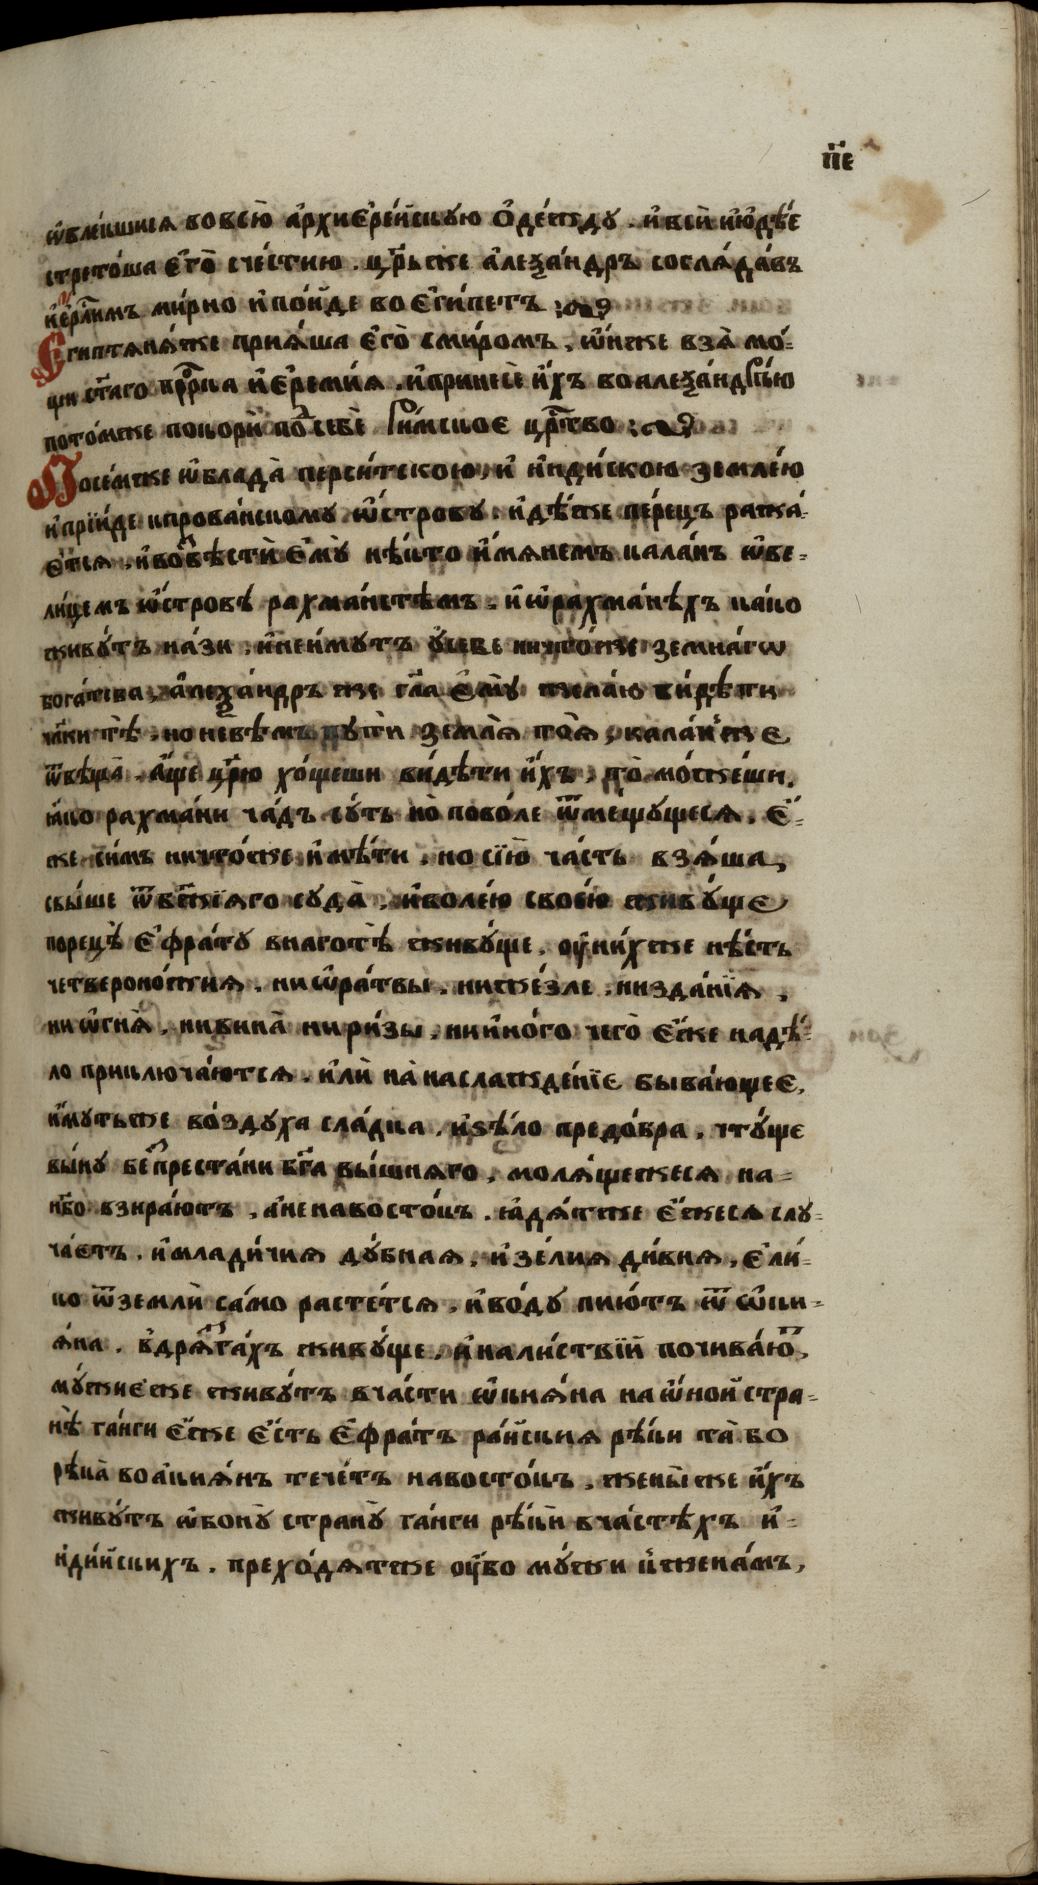 п҃е
ѡ҆болкшися во всю̀ а҆рхиере́йскую ѻ҆де́жду . и҆ всѝ и҆юдѣ́е
стрето́ша є҆го̀ с че́стию . цр҃ь же а҆леѯа́ндръ согляда́въ
и҆ерⷭ҇лимъ ми́рно и҆ по́йде во є҆ги́петъ
Є҆гиптя́нѧ же прия́ша є҆го̀ с ми́ромъ , ѿню́дꙋ же взя̀ мо́-
щи ст҃аго прⷪ҇рка и҆ереми́я . и҆ принесѐ и҆́хъ во алеѯа́ндрⷭ҇ию
пото́мже покорѝ под себѐ ри́мское црⷭ҇тво
По се́мже ѡ҆блада̀ перси́тскою , и҆ и҆нди́скою земле́ю
и҆ прїи́де к прова́нскому ѡ҆́строву . и҆дѣ́же пе́рецъ ража́-
є҆тся , и҆ возвѣстѝ є҆мꙋ̀ нѣ́кто и҆́мянемъ кала́нъ ѡ҆ ве-
ли́цемъ ѡ҆́стровѣ рахма́нстѣмъ . и҆ ѡ҆ рахма́нѣхъ ка́ко
живꙋ́тъ на́зи , и҆ не и҆́мутъ ᲂу҆ себѐ ничто́же земна́гѡ
бога́тсва , а҆леѯа́ндръ же гл҃а є҆мꙋ̀ жела́ю ви́дѣти
ча҃ки тѣ̀ . но не вѣ́мъ путѝ землѧ̀ тоѧ̀ , кала́нъ же
ѿвѣща̀ . а҆́ще цр҃ю хо́щеши ви́дѣти и҆́хъ , то̀ мо́жеши .
ꙗ҆́ко рахма́ни ча́дъ сꙋ́ть но̀ по во́ле ѿмещꙋщеся . є҆́-
же си́мъ ничто́же и҆мѣ́ти . но сїю̀ ча́сть взя́ша ,
свы́ше ѿ бж҃їяго суда̀ . и҆ во́лею свое́ю живꙋ́ще
по рецѣ̀ є҆фра́ту в наготѣ̀ живꙋ́ще . ᲂу҆ ни́хже нѣ́сть
четвероно́жия . ни ѡ҆ра́твы . ни же́зле . ни зда́нїя ,
ни ѡ҆гня̀ , ни вина̀ ни ри́зы . ни и҆но́го чего̀ є҆́же на дѣ́-
ло приключа́ются . и҆лѝ на̀ наслажде́нїе быва́ющее ,
и҆́муть же во́здꙋха сла́дка . и҆ ѕѣ́ло предо́бра , чтꙋ́ще
вы́ну беспреста́ни бг҃а вы́шняго , моля́ще же ся на-
нб҃о взира́ютъ , а҆ не на восто́къ . ꙗ҆дя́тже є҆́же ся слꙋ-
ча́етъ . и҆ млади́чия дꙋ́бная , и҆ зе́лия ди́вия , є҆ли́-
ко ѿ землѝ са́мо расте́тся , и҆ во́дꙋ пию́тъ ѿ ѡ҆ки-
я́на . в дрязга́хъ живꙋ́ще , и҆ на ли́ствїй почива́ют ,
мꙋ́жие же живꙋ́тъ в ча́сти ѡ҆кия́на на ѡ҆́ной стра-
нѣ̀ га́нги є҆́же є҆́сть є҆фра́тъ ра́йския рѣ́ки та̀ бо
рѣ́ка во а҆кия́нъ тече́тъ на восто́къ , жены́ же и҆́хъ
живꙋ́тъ ѡ҆бонꙋ̀ странꙋ̀ га́нги рѣ́ки в ча́стѣхъ и҆-
нди́йскихъ . прехо́дятже ᲂу҆́бо мꙋ́жи к жена́мъ ,